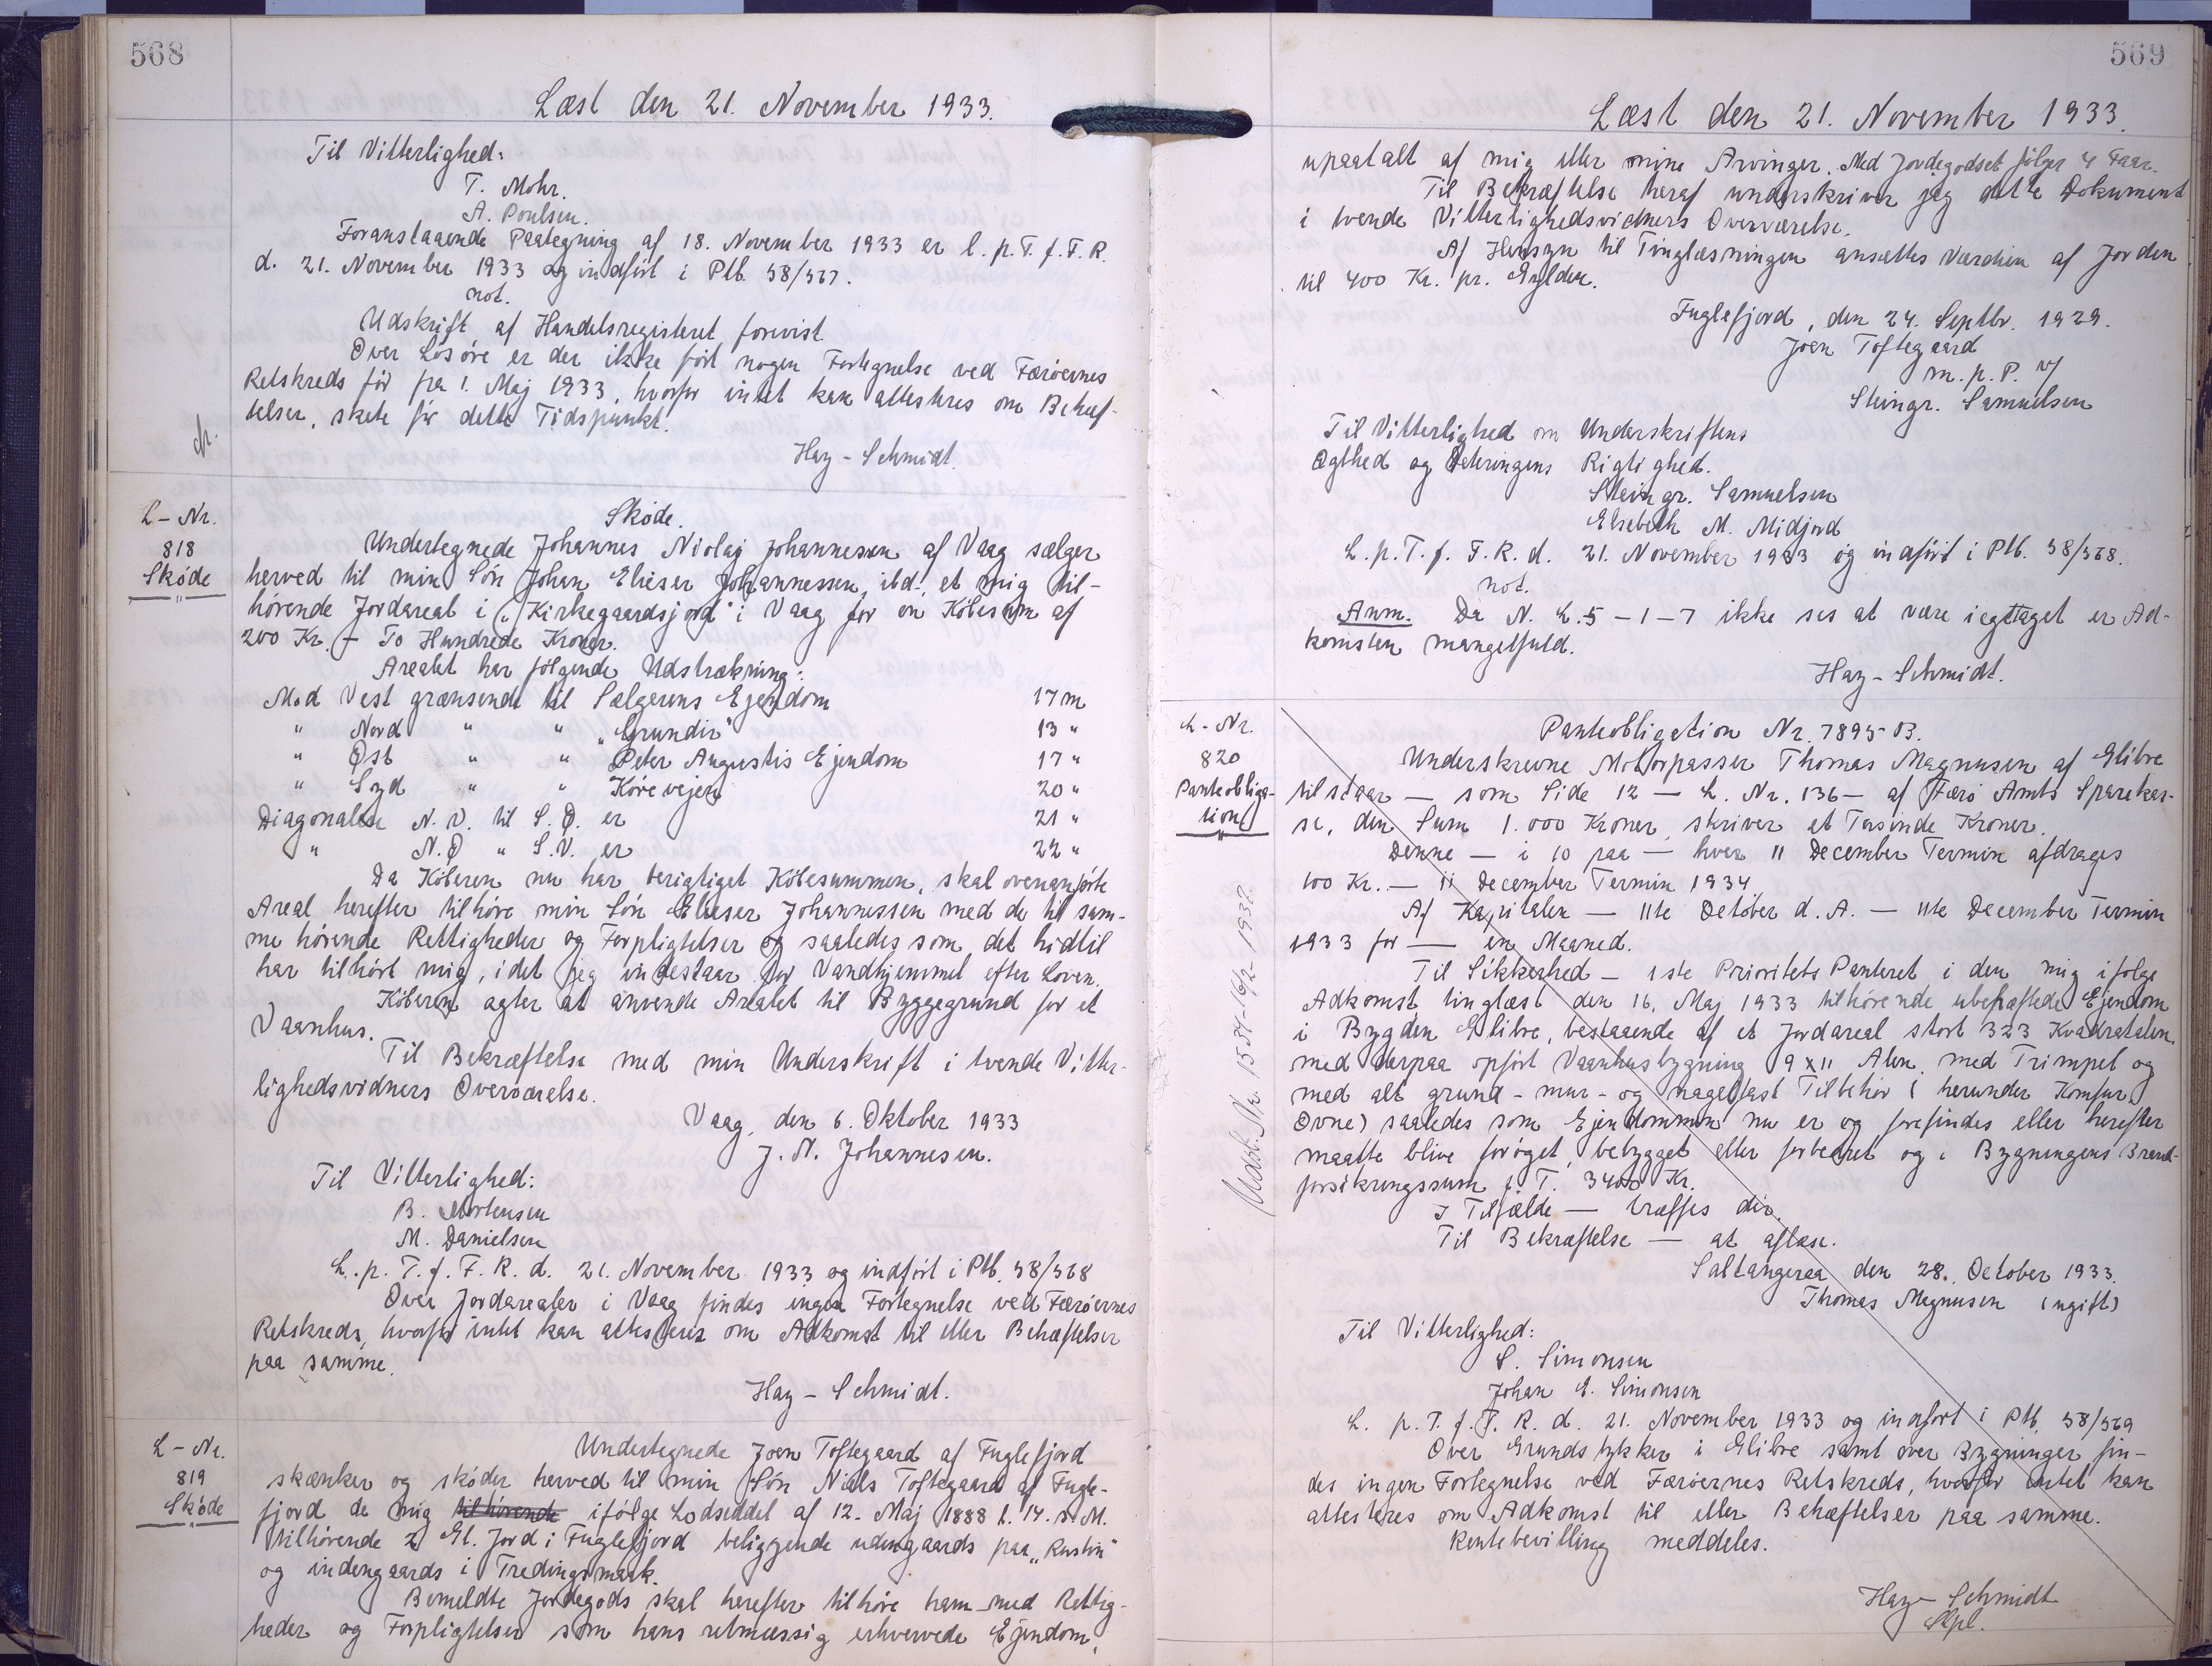 568
Læst den 21. November 1933.
Til Vitterlighed:
T. Mohr.
A. Poulsen.
Foranstaaende Paategning af 18. November 1933 er l. p. T. f. F. R.
d. 21. November 1933 og indført i Ptb. 58/567.
not.
Udskrift af Handelsregisteret forevist.
Over Løsøre er der ikke ført nogen Fortegnelse ved Færøernes
Retskreds før fra 1. Maj 1933, hvorfor intet kan attesteres om Behæf-
telser, skete før dette Tidspunkt.
Hay-Schmidt.
L-Nr.
818
Skøde
Skøde.
Undertegnede Johannes Niolaj Johannessen af Vaag sælger
herved til min Søn Johan Elieser Johannessen, ibd., et mig til-
hørende Jordareal i "Kirkegaardsjord" i Vaag for en Købesum af
200 Kr. - To Hundrede Kroner.
Arealet har følgende Udstrækning:
Mod Vest grænsende til Sælgerens Ejendom 17 m
" Nord " " "Grundir" 13 "
" Øst " " Peter Augustis Ejendom 17 "
" Syd " " Kørevejen 20 "
Diagonalen N. V. til S. Ø. er 21 "
" N. Ø " S. V. er 22 "
Da Køberen nu har berigtiget Købesummen, skal ovenanførte
Areal herefter tilhøre min Søn Elieser Johannessen med de til sam-
me hørende Rettigheder og Forpligtelser og saaledes som det hidtil
har tilhørt mig, idet jeg indestaar for Vandhjemmel efter Loven.
Køberen agter at anvende Arealet til Byggegrund for et
Vaanhus.
Til Bekræftelse med min Underskrift i tvende Vitter-
lighedsvidners Overværelse.
Vaag, den 6. Oktober 1933
J. N. Johannesen.
Til Vitterlighed:
B. Mortensen
M. Danielsen
L. p. T. f. F. R. d. 21. November 1933 og indført i Ptb. 58/568
Over Jordarealer i Vaag findes ingen Fortegnelse ved Færøernes
Retskreds, hvorfor intet kan attesteres om Adkomst til eller Behæftelser
paa samme.
Hay-Schmidt.
L-Nr.
819
Skøde
Undertegnede Joen Toftegaard af Fuglefjord
skænker og skøder herved til min Søn Niels Toftegaard af Fugle-
fjord de mig tilhørende ifølge Lodseddel af 12. Maj 1888 l. 14. s. M.
tilhørende 2 Gl. Jord i Fuglefjord beliggende udengaards paa "Rustin"
og indengaards i Tredingsmark.
Bemeldte Jordegods skal herefter tilhøre ham med Rettig-
heder og Forpligtelser som hans retmæssig erhvervede Ejendom,
569
Læst den 21. November 1933.
upaatalt af mig eller mine Arvinger. Med Jordegodset følger 4 Faar.
Til Bekræftelse heraf underskriver jeg dette Dokument
i tvende Vitterlighedsvidners Overværelse.
Af Hensyn til Tinglæsningen ansættes Værdien af Jorden
til 400 Kr. pr. Gylden.
Fuglefjord, den 24. Septbr. 1929.
Joen Toftegaard
m. p. P. v/
Steingr. Samuelsen
Til Vitterlighed om Underskriftens
Ægthed og Dateringens Rigtighed.
Steingr. Samuelsen
Elsebeth M. Midjord
L. p. T. f. F. R. d. 21. November 1933 og indført i Ptb. 58/568.
not.
Anm. Da N. L. 5-1-7 ikke ses at være iagttaget er Ad-
komsten mangelfuld.
Hay-Schmidt.
L-Nr.
820
Panteobliga-
tion
Panteobligation Nr. 7895-B.
Underskrevne Motorpasser Thomas Magnusen af Glibre
tilstaar - som Side 12 - L. Nr. 136 - af Færø Amts Sparekas-
se, den Sum 1.000 Kroner, skriver et Tusinde Kroner.
Denne - i 10 paa - hver 11 December Termin afdrages
100 Kr. - 11 December Termin 1934.
Af Kapitalen - 11te October d. A. - 11te December Termin
1933 for - en Maaned.
Til Sikkerhed - 1ste Prioritets Panteret i den mig ifølge
Adkomst, tinglæst den 16. Maj 1933 tilhørende ubehæftede Ejendom
i Bygden Glibre, bestaaende af et Jordareal stort 323 Kvadratalen
med derpaa opført Vaanhusbygning 9 x 11 Alen med Trimpel og
med alt grund- mur- og nagelfast Tilbehør (herunder Komfur,
Ovne) saaledes som Ejendommen nu er og forefindes eller herefter
maatte blive forøget, bebygget eller forbedret og i Bygningens Brand-
forsikringssum f. T. 3400 Kr.
I Tilfælde - træffes der.
Til Bekræftelse - at aflæse.
Saltangeraa den 28. October 1933.
Thomas Magnusen (ugift)
Til Vitterlighed:
S. Simonsen
Johan E. Simonsen
L. p. T. f. F. R. d. 21. November 1933 og indført i Ptb. 58/569
Over Grundstykker i Glibre samt over Bygninger fin-
des ingen Fortegnelse ved Færøernes Retskreds, hvorfor intet kan
attesteres om Adkomst til eller Behæftelser paa samme.
Rentebevilling meddeles.
Hay-Schmidt